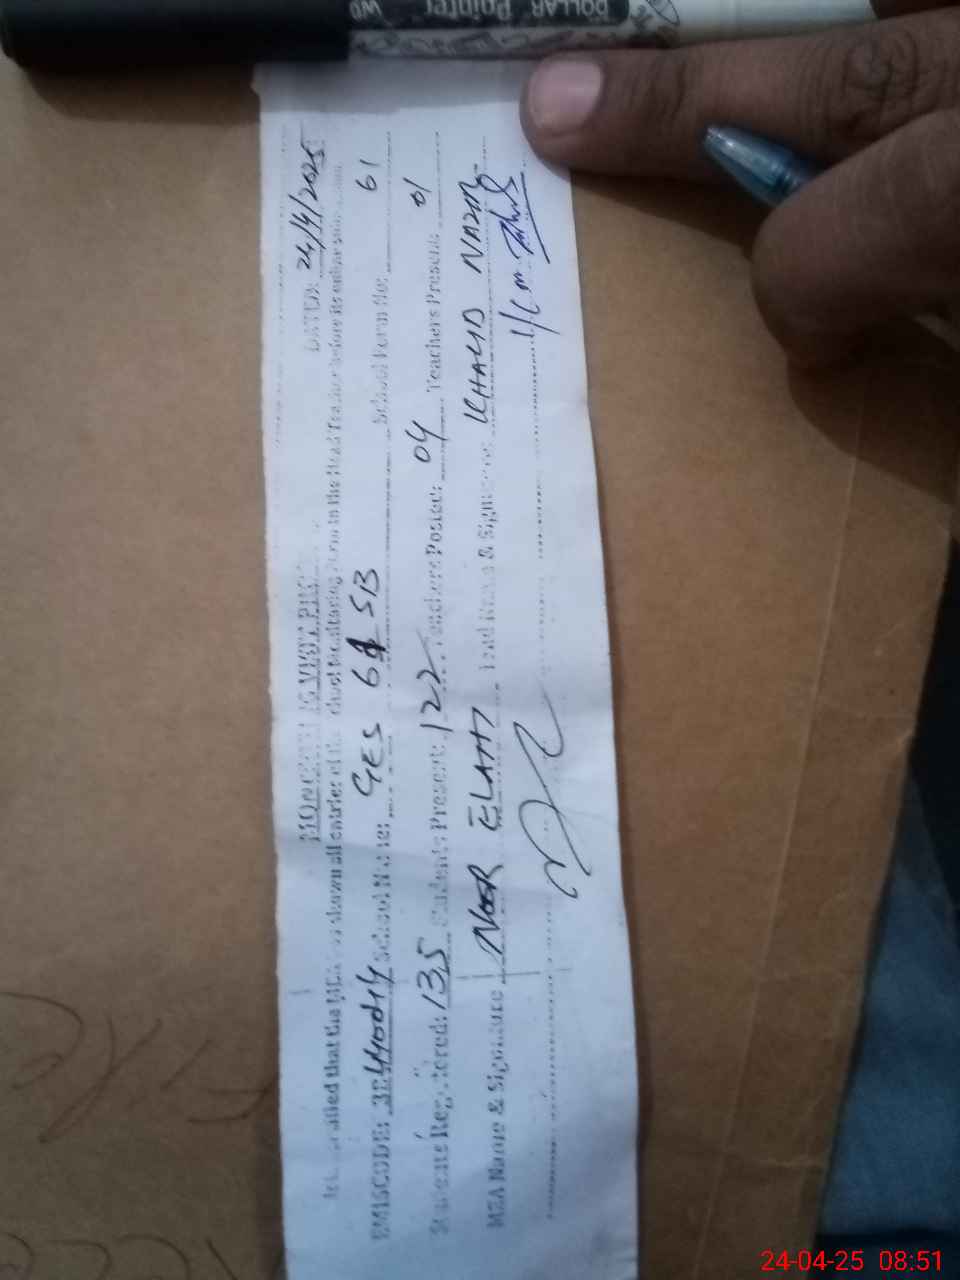 DOLLAR Pointer
MONITORING VISIT PROOF
DATED: 24/4/2025
It is certified that the MEA has shown all entries of the School Monitoring Form to the Head Teacher before its submission
EMISCODE: 38440014 School Name: GES 61 SB School Form No: 61
Students Registered: 135 Students Present: 122 Teachers Posted: 04 Teachers Present: 01
MEA Name & Signature NOOR ELAHI Head Name & Signature: KHALID NAZIR
24-04-25 08:51